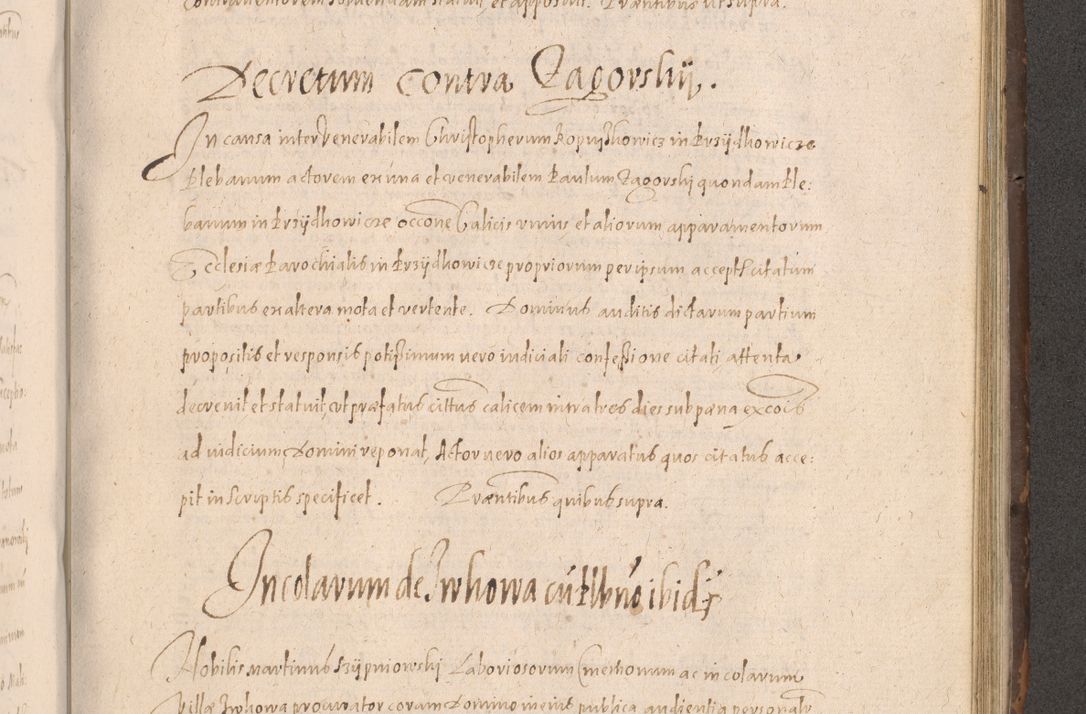 Decretum contra Zagorskij.
In causa inter Venerabilem Christopherum Kopijthowicz in Krzijdhowicze
Plebanum actorem ex una et venerabilem Paulum Zagorskij quondam Ple:
banum in Krzijdhowicze occone Calicis unius et aliorum apparamentorum
Ecclesiæ Parochialis in Krzijdhowicze propriorum per ipsum accept citatum
partibus ex altera mota et vertente. Dominus auditis dictarum partium
propositis et responsis potissimum vero iudiciali confessione citati attenta
decrevit et statuit, ut præfatus cittus calicem intra tres dies sub pœna excois
ad iudicium Domini reponat, Actor vero alios apparatus quos citatus acce:
pit in Scriptis specificet. Præntibus quibus supra.
Incolarum de Iwhowa cū Plbno ibid
Nobilis Martinus Szijpniowskij Laboriosorum Cmethonum ac incolarum
Villæ Iwhowa procurator coram Domino meius publica audientia personalr